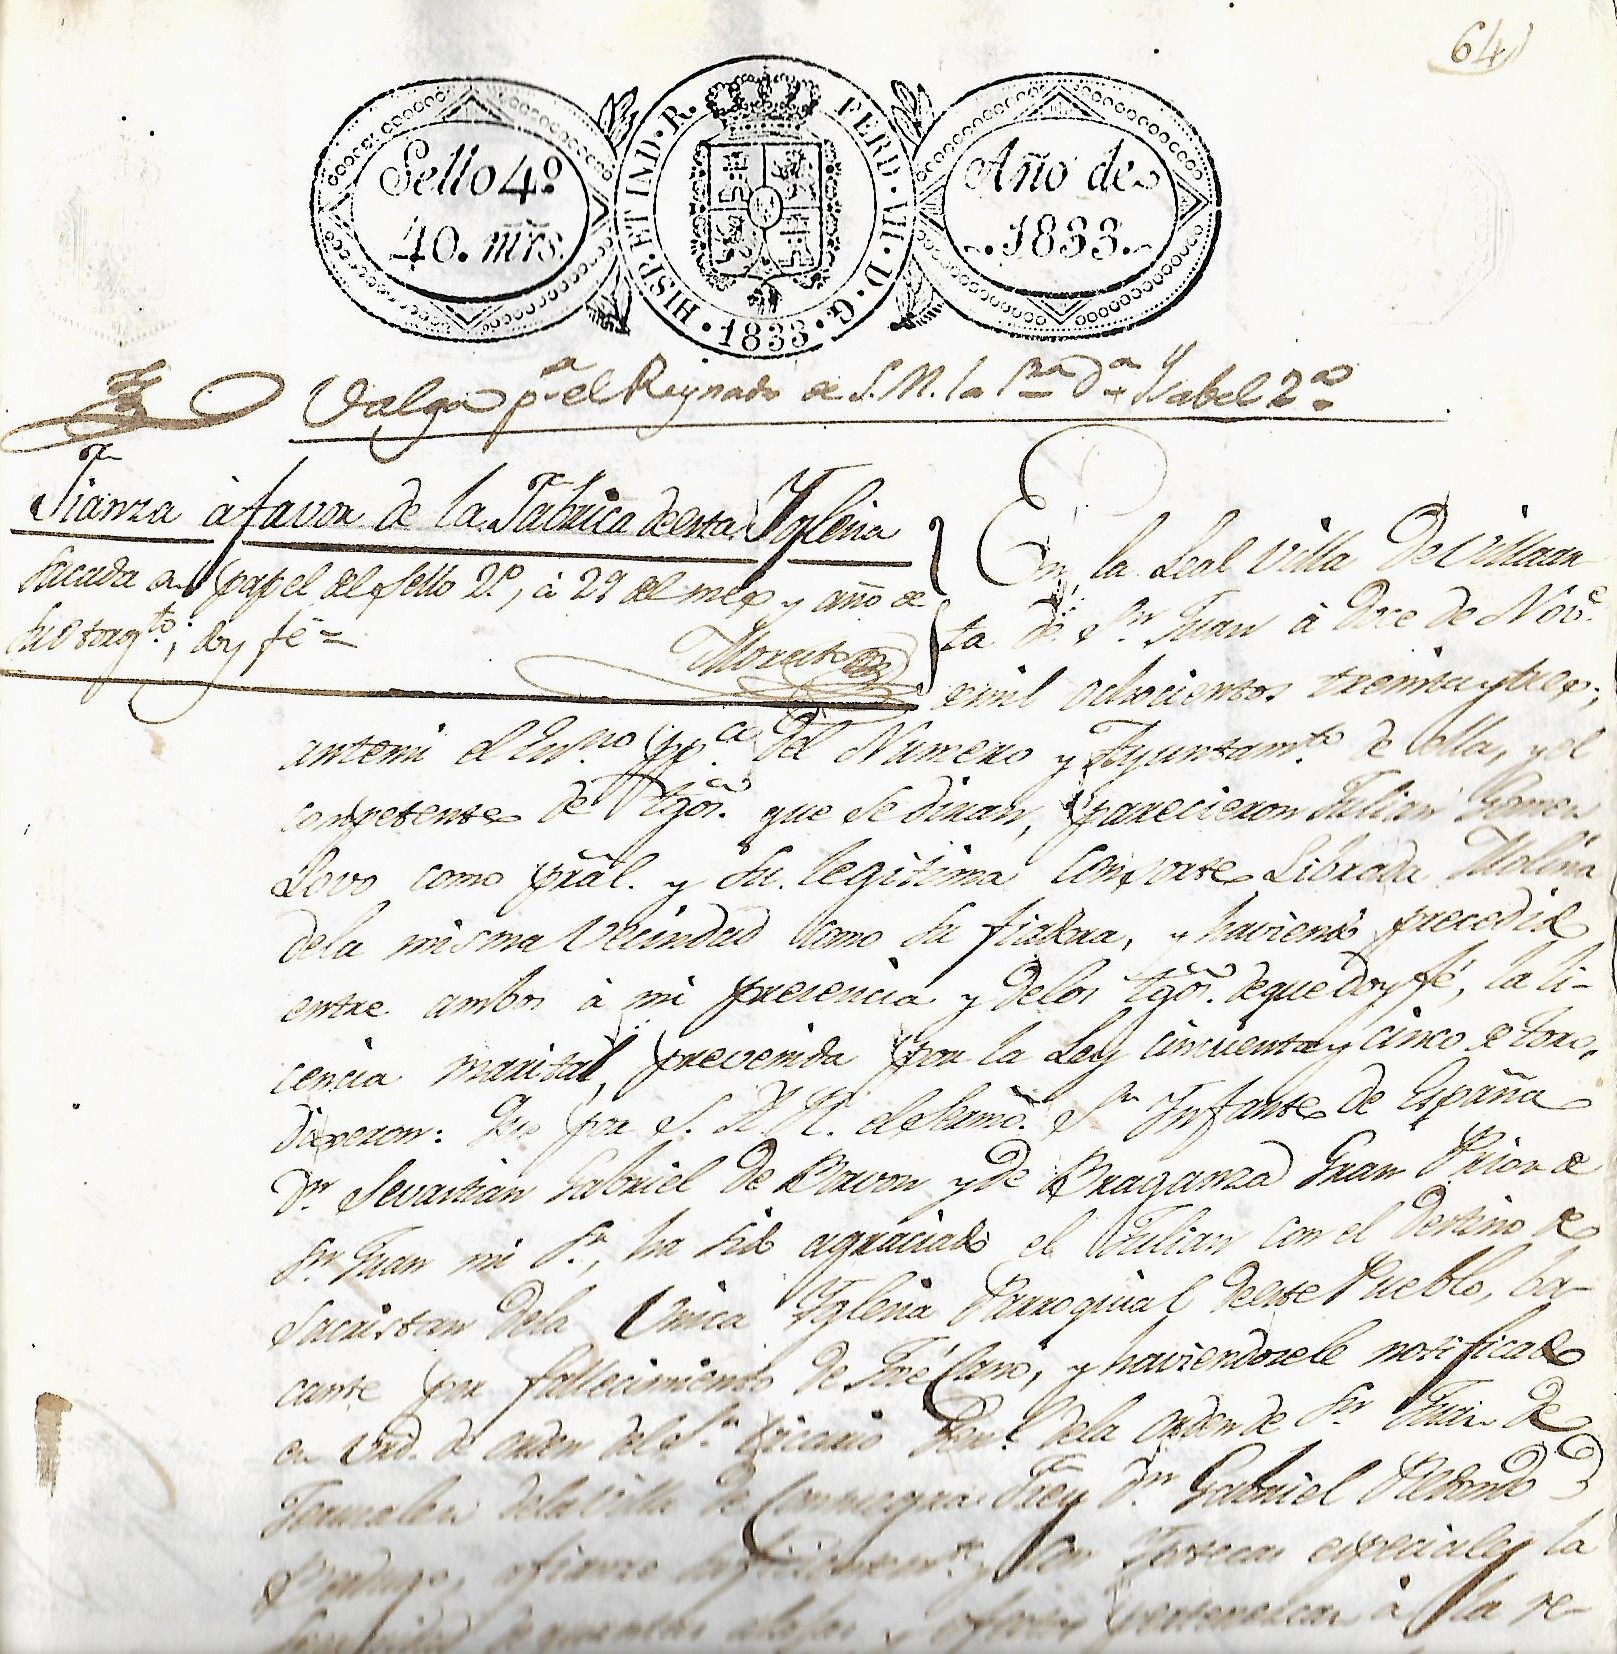 64
Sello 4º
40. mrs.
HISP. ET IND. R. FERD. VII. D. G. 1833.
Año de
.1833.
Valga pª el Reynado de S.M. la Srª Dª Ysabel 2ª
Fianza à favor de la Fabrica de esta Yglesia
Sacada en papel del Sello 2º, à 29 del mes y año de
su otorgtº; doy fé =
En la Leal Villa de Villaan-
ta de Sn Juan à doce de Nove
mil ochocientos treinta y tres;
antemi el Esnº ppcº del Numero y Ayuntamtº de ella, y el
competente de tgos. que se diran, parecieron Julian Gomez
Lovo como pral. y su legitima consorte Librada Molina
dela misma vecindad como su fiadora, y haviendo precedido
entre ambos à mi presencia y delos tgos. de que doy fé, la li-
cencia marital, prevenida por la Ley cincuenta y cinco de toro,
dixeron: Que por S. A. R. el Sermo. Sr Infante de España
Dn Sevastian Gabriel de Borvon y de Braganza Gran Prior de
Sn Juan mi Sr, ha sido agraciado el Julian con el destino de
Sacristan dela Unica Yglesia Parroquial de este Pueblo, ba-
cante por fallecimiento de José Cano, y haviendosele notificado
en vrd. de orden del Sr Vicario Genl dela orden de Sn Juan de
Jerusalen dela Villa de Consuegra Frey Dn Gabriel
afiance suficientemte y con Ypotecas especiales la
de quantas alajas y efectos pertenezcan à la re-